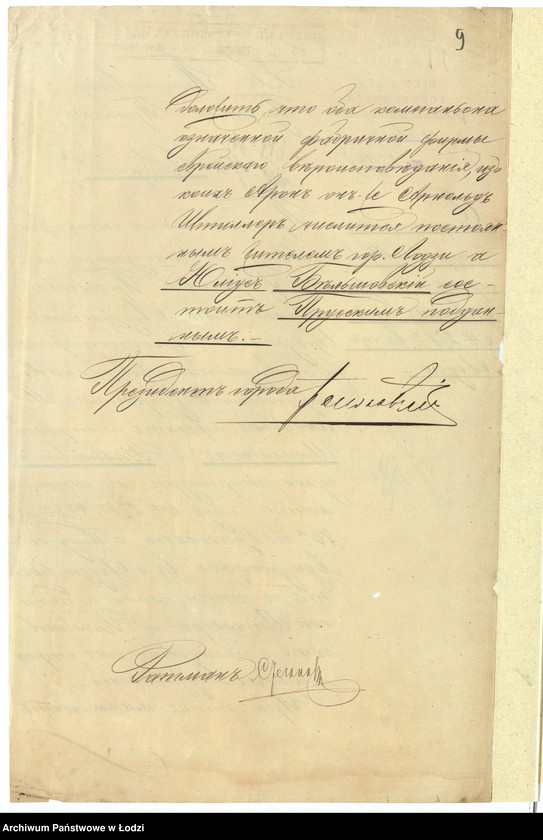 9
доложить, что оба компаньона
означенной фабричной фирмы
еврейскаго вероисповеданія, изъ
коихъ Аронъ онъ-же Арнольдъ
Штиллеръ числится постоян-
нымъ жителемъ гор. Лодзи а
Юліусъ Бѣльшовскій сос-
тоитъ Прусскимъ поддан-
нымъ.-
Президентъ города
Ратманъ
Archiwum Państwowe w Łodzi